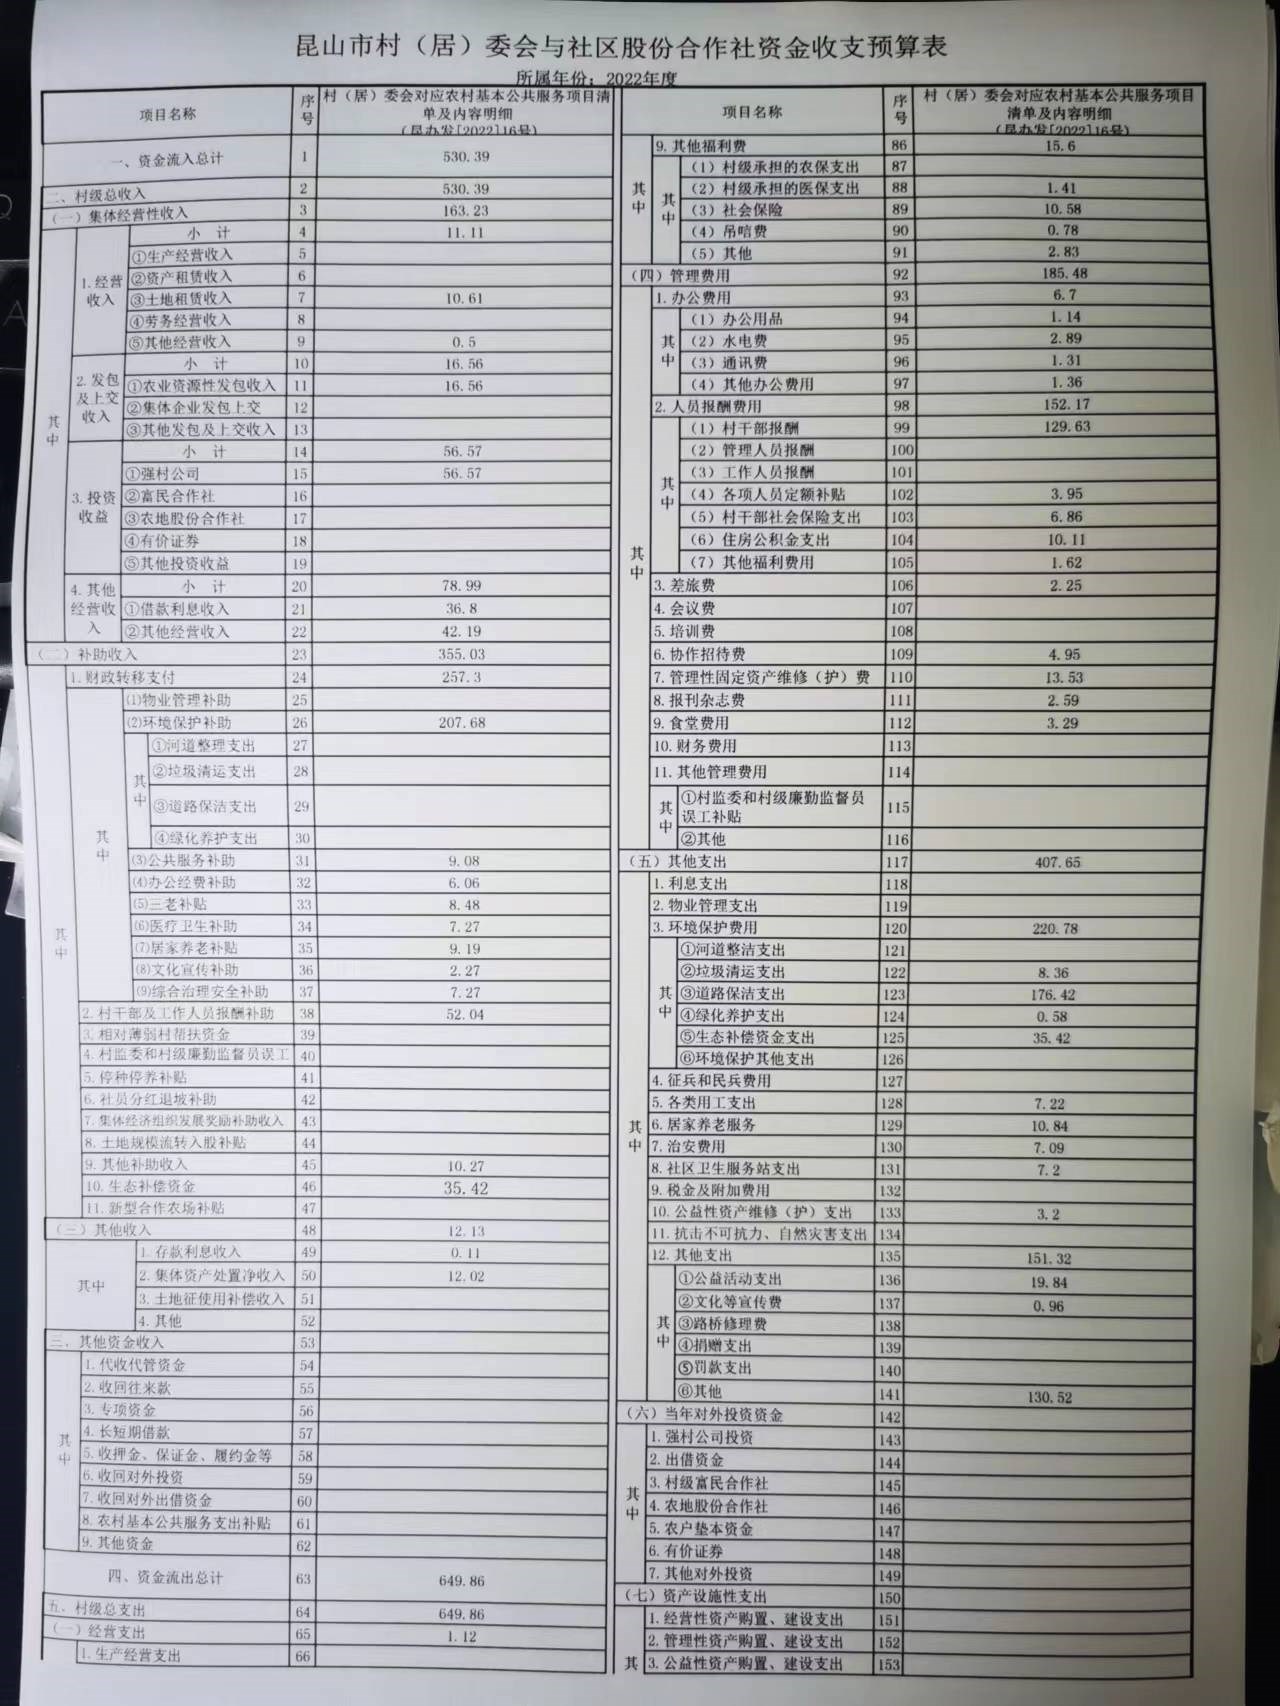 昆山市村（居）委会与社区股份合作社资金收支预算表
所属年份：2022年度
项目名称 序号 村（居）委会对应农村基本公共服务项目清单及内容明细（昆办发[2022]16号）
一、资金流入总计 1 530.39
二、村级总收入 2 530.39
（一）集体经营性收入 3 163.23
其中
1.经营收入
小 计 4 11.11
①生产经营收入 5
②资产租赁收入 6
③土地租赁收入 7 10.61
④劳务经营收入 8
⑤其他经营收入 9 0.5
2.发包及上交收入
小 计 10 16.56
①农业资源性发包收入 11 16.56
②集体企业发包上交 12
③其他发包及上交收入 13
3.投资收益
小 计 14 56.57
①强村公司 15 56.57
②富民合作社 16
③农地股份合作社 17
④有价证券 18
⑤其他投资收益 19
4.其他经营收入
小 计 20 78.99
①借款利息收入 21 36.8
②其他经营收入 22 42.19
（二）补助收入 23 355.03
其中
1.财政转移支付 24 257.3
其中
⑴物业管理补助 25
⑵环境保护补助 26 207.68
其中
①河道整理支出 27
②垃圾清运支出 28
③道路保洁支出 29
④绿化养护支出 30
⑶公共服务补助 31 9.08
⑷办公经费补助 32 6.06
⑸三老补贴 33 8.48
⑹医疗卫生补助 34 7.27
⑺居家养老补贴 35 9.19
⑻文化宣传补助 36 2.27
⑼综合治理安全补助 37 7.27
2.村干部及工作人员报酬补助 38 52.04
3.相对薄弱村帮扶资金 39
4.村监委和村级廉勤监督员误工 40
5.停种停养补贴 41
6.社员分红退坡补助 42
7.集体经济组织发展奖励补助收入 43
8.土地规模流转入股补贴 44
9.其他补助收入 45 10.27
10.生态补偿资金 46 35.42
11.新型合作农场补贴 47
（三）其他收入 48 12.13
其中
1.存款利息收入 49 0.11
2.集体资产处置净收入 50 12.02
3.土地征使用补偿收入 51
4.其他 52
三、其他资金收入 53
其中
1.代收代管资金 54
2.收回往来款 55
3.专项资金 56
4.长短期借款 57
5.收押金、保证金、履约金等 58
6.收回对外投资 59
7.收回对外出借资金 60
8.农村基本公共服务支出补贴 61
9.其他资金 62
四、资金流出总计 63 649.86
五、村级总支出 64 649.86
（一）经营支出 65 1.12
1.生产经营支出 66
项目名称 序号 村（居）委会对应农村基本公共服务项目清单及内容明细（昆办发[2022]16号）
其中
9.其他福利费 86 15.6
其中
（1）村级承担的农保支出 87
（2）村级承担的医保支出 88 1.41
（3）社会保险 89 10.58
（4）吊唁费 90 0.78
（5）其他 91 2.83
（四）管理费用 92 185.48
其中
1.办公费用 93 6.7
其中
（1）办公用品 94 1.14
（2）水电费 95 2.89
（3）通讯费 96 1.31
（4）其他办公费用 97 1.36
2.人员报酬费用 98 152.17
其中
（1）村干部报酬 99 129.63
（2）管理人员报酬 100
（3）工作人员报酬 101
（4）各项人员定额补贴 102 3.95
（5）村干部社会保险支出 103 6.86
（6）住房公积金支出 104 10.11
（7）其他福利费用 105 1.62
3.差旅费 106 2.25
4.会议费 107
5.培训费 108
6.协作招待费 109 4.95
7.管理性固定资产维修（护）费 110 13.53
8.报刊杂志费 111 2.59
9.食堂费用 112 3.29
10.财务费用 113
11.其他管理费用 114
其中
①村监委和村级廉勤监督员误工补贴 115
②其他 116
（五）其他支出 117 407.65
其中
1.利息支出 118
2.物业管理支出 119
3.环境保护费用 120 220.78
其中
①河道整洁支出 121
②垃圾清运支出 122 8.36
③道路保洁支出 123 176.42
④绿化养护支出 124 0.58
⑤生态补偿资金支出 125 35.42
⑥环境保护其他支出 126
4.征兵和民兵费用 127
5.各类用工支出 128 7.22
6.居家养老服务 129 10.84
7.治安费用 130 7.09
8.社区卫生服务站支出 131 7.2
9.税金及附加费用 132
10.公益性资产维修（护）支出 133 3.2
11.抗击不可抗力、自然灾害支出 134
12.其他支出 135 151.32
其中
①公益活动支出 136 19.84
②文化等宣传费 137 0.96
③路桥修理费 138
④捐赠支出 139
⑤罚款支出 140
⑥其他 141 130.52
（六）当年对外投资资金 142
其中
1.强村公司投资 143
2.出借资金 144
3.村级富民合作社 145
4.农地股份合作社 146
5.农户垫本资金 147
6.有价证券 148
7.其他对外投资 149
（七）资产设施性支出 150
其
1.经营性资产购置、建设支出 151
2.管理性资产购置、建设支出 152
3.公益性资产购置、建设支出 153